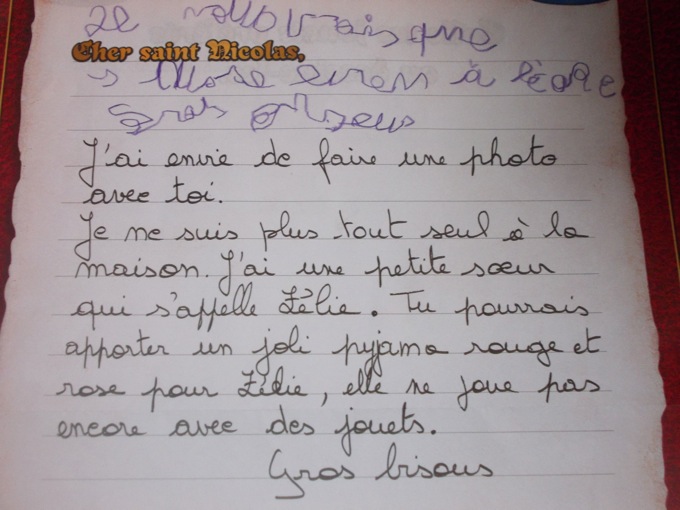 que
Cher saint Nicolas,
à
J'ai envie de faire une photo
avec toi.
Je ne suis plus tout seul à la
maison. J'ai une petite sœur
qui s'appelle Zélie. Tu pourrais
apporter un joli pyjama rouge et
rose pour Zélie, elle ne joue pas
encore avec des jouets.
Gros bisous